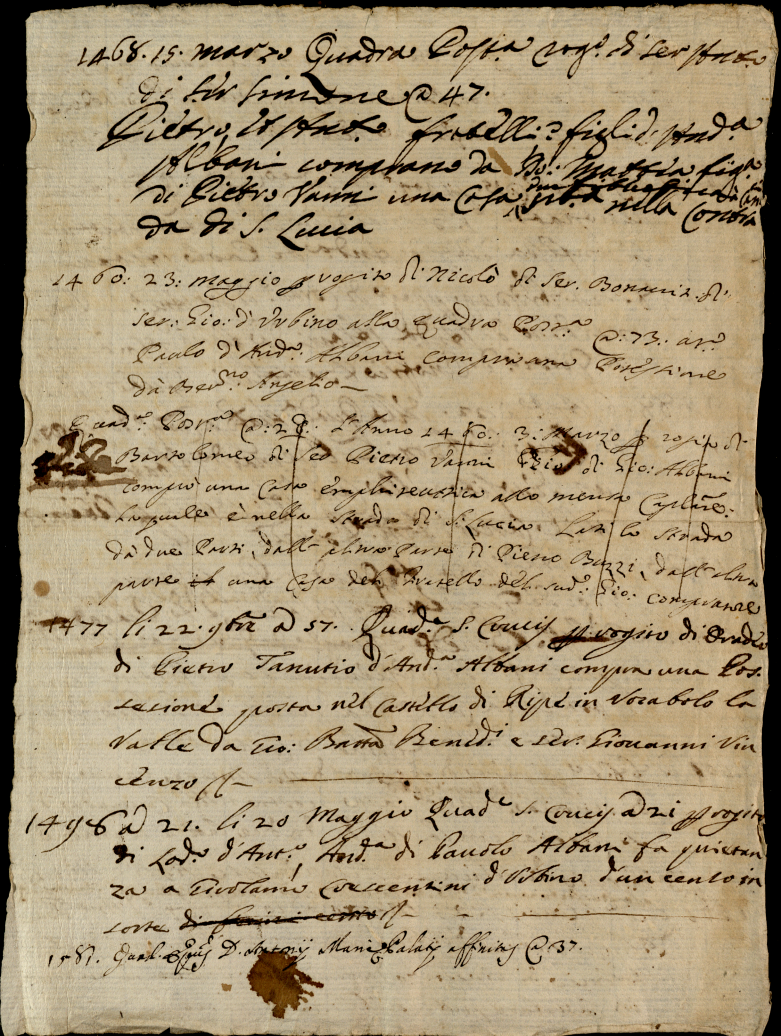 1468. 15. marzo Quadra Post.a rog.o di ser Ant.o
di ser Simone @ 47.
Pietro, et Ant.o fratelli e figli d'And.a
Albani comprano da Mattia fig.a
di Pietro Vanni una Casa nella Contra
da di S. Lucia
1460: 23: maggio p rogito di Nicolò di Ser. Bonaven.
Ser: Gio: d'Urbino alla Quadra Post.a @: 73:
Paulo d'And.a Albani comprò una Possessione
da Angelo
Quad.a Post.a @: 28: L'Anno 1460: 3: Marzo p rogito di
Bartolomeo di Ser Pietro Vanni Gio: di Gio: Albani
comprò una Casa emphiteutica alla mensa
la quale è nella strada di S: Lucia Lati la strada
da due Parti, dall'altra Parte di Pietro Buzzi, dall'altra
parte una Casa del fratello del sud.o Gio: compratore
1477 li 22. 9bre a 57. Quad.a S. Crucis p rogito di
di Pietro Tanutio d'And.a Albani compra una Pos
sessione posta nel Castello di Ripe in Vocabolo la
Valle da Gio: Batta Bened.i e ser. Giovanni Vin
cenzo
1498 a 21. li 20 Maggio Quad.a S. Crucis a 21 p rogito
di Lod.o d'Ant.o, And.a di Pauolo Albani fa quietan
za a Girolamo Crescentini d'Urbino d'un cento in
sorte
1581. Quad. D. Antonij Marie @ 37.